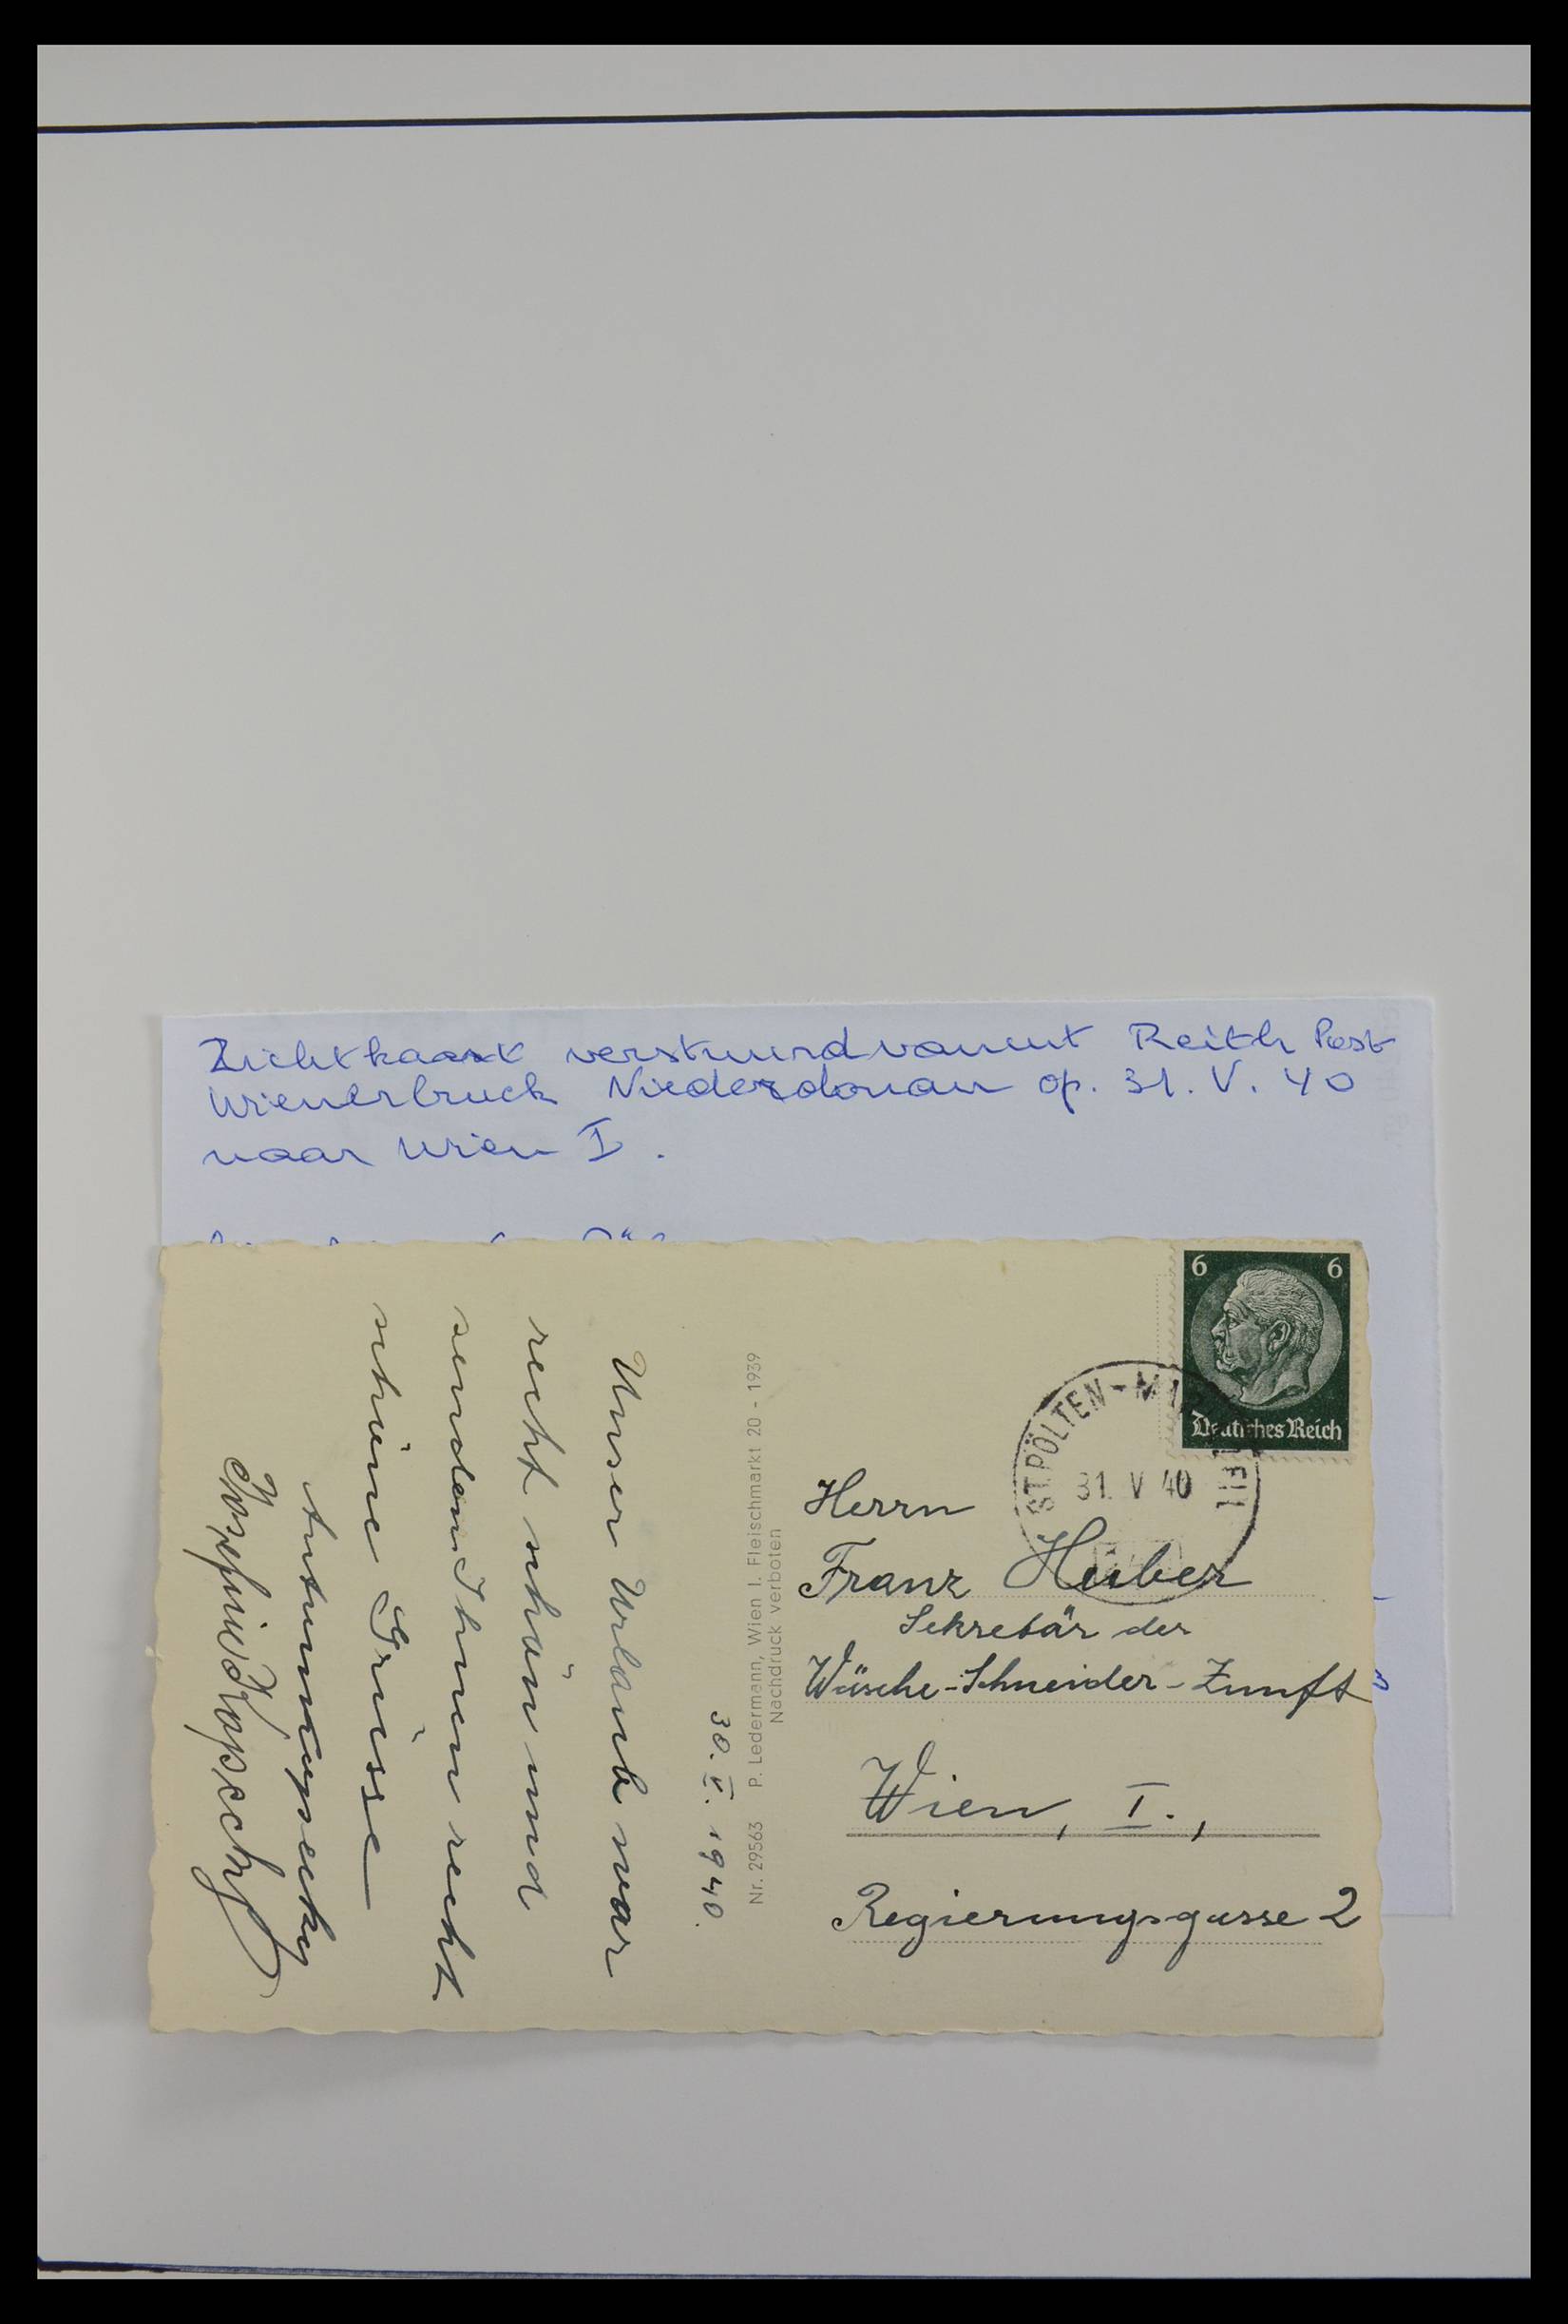 Zichtkaart verstuurd vanuit Reith Post
Wienerbruck Niederdonau op. 31. V. 40
naar Wien I.
6 6
Deutsches Reich
ST. PÖLTEN - M
31. V 40
Herrn
Franz Huber
Sekretär der
Wäsche-Schneider-Zunft
Wien, I.,
Regierungsgasse 2
Nr. 29563 P. Ledermann, Wien I. Fleischmarkt 20 - 1939
Nachdruck verboten
30. V. 1940.
Unser Urlaub war
recht schön und
senden Ihnen recht
schöne Grüsse